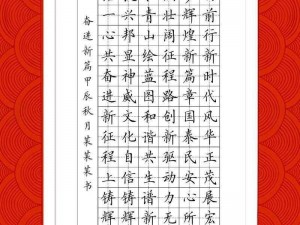 前行新时代风华正茂展宏
辉煌篇章国泰民安心所
壮阔新征程创新驱动力无
青山绘蓝图和谐共生谱新
兴邦显神威文化自信铸辉
一心共奋进新征程上铸辉
奋进新篇甲辰秋月某某某书